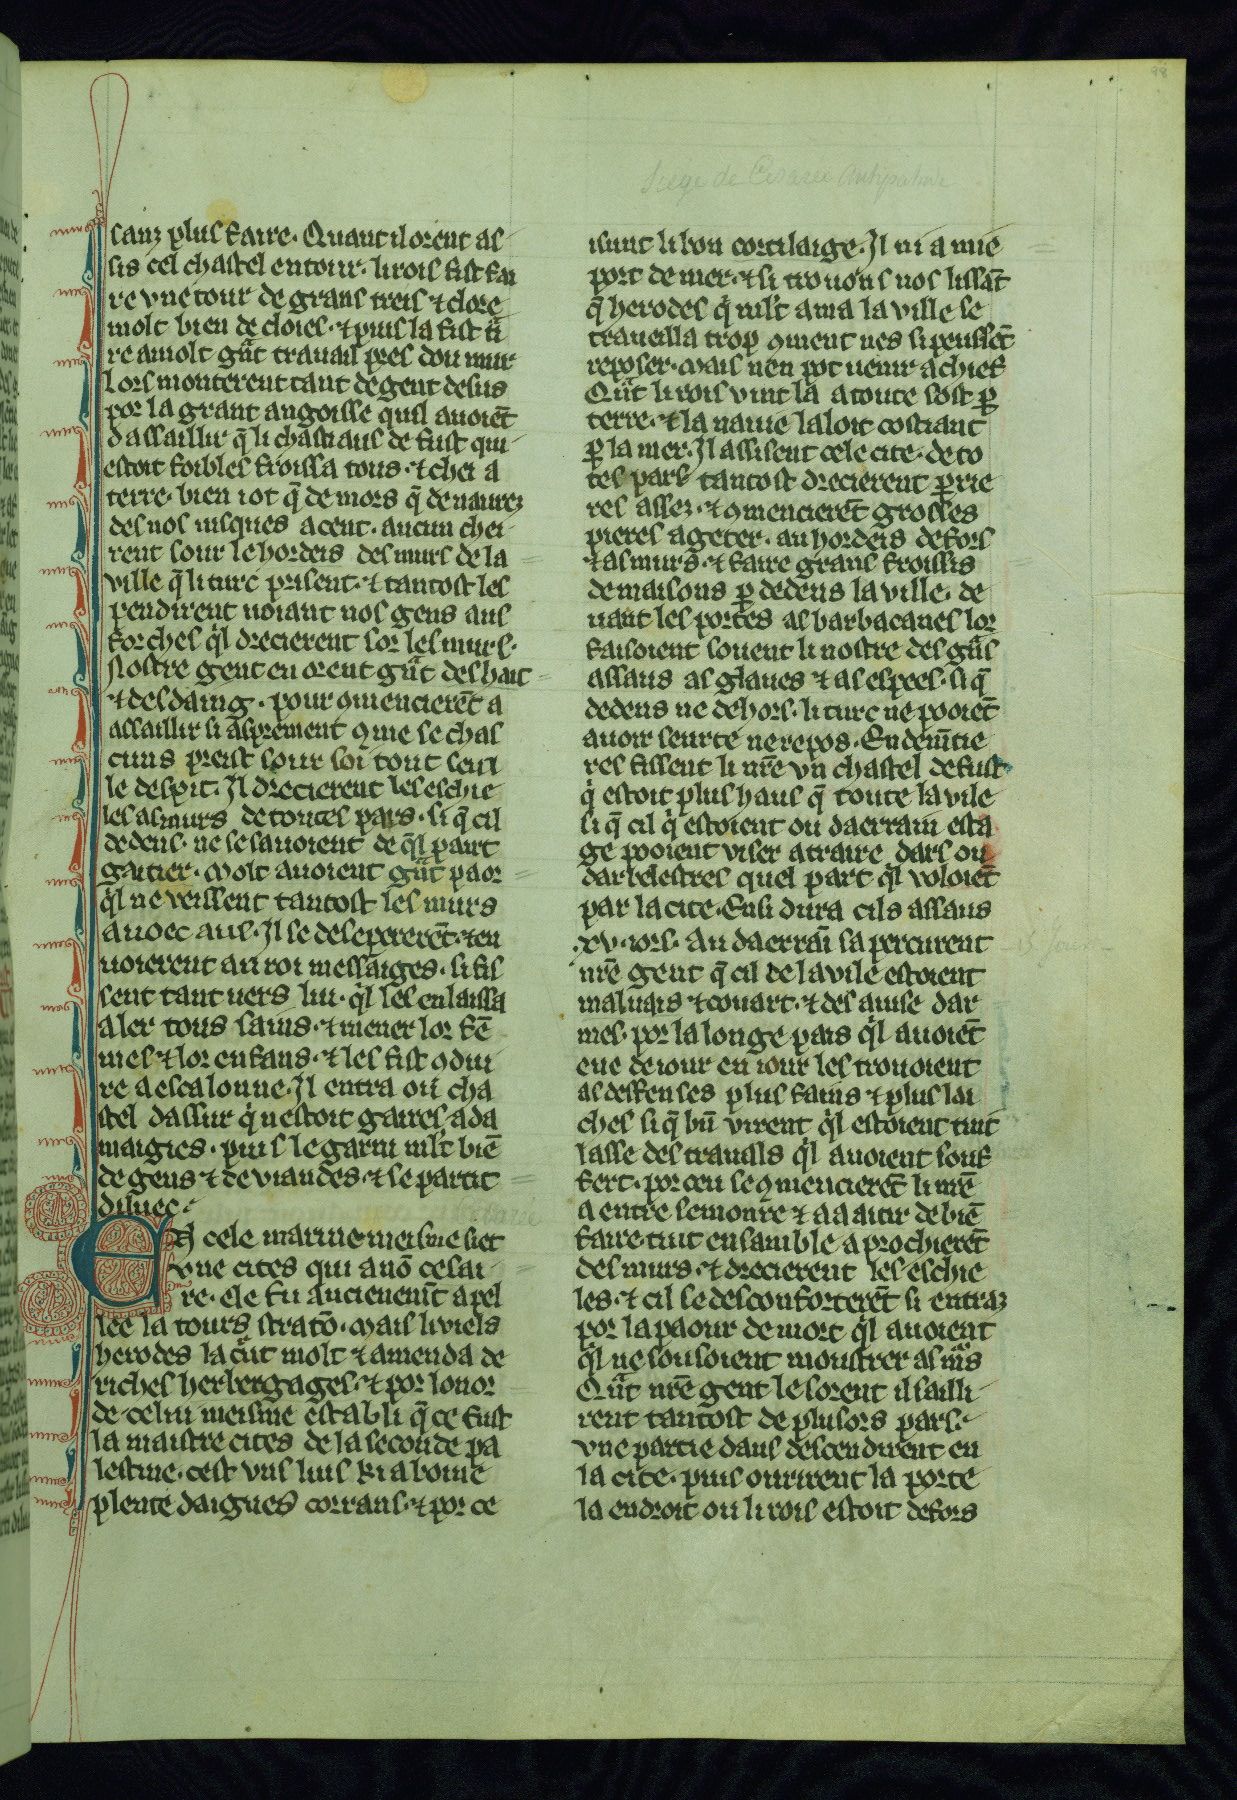 98
Siege de Cesaree Antipatride
sanz plus faire. Quant il orent as
sis cel chastel entour. li rois fist fai
re vne tour de grans treis ⁊ clore
molt bien de cloies. ⁊ puis la fist ti
re a molt gñt trauail pres dou mur
Lors monterent tant de gent desus
por la grant angoisse quil auoiẽt
dassaillir q̃ li chastiaus de fust qui
estoit foibles froissa tous. ⁊ chei a
terre. bien i ot q̃ de mors q̃ de naurez
des nos iusques a cent. aucun chei
rent sour le hordeis des murs de la
ville q̃ li turc prisent. ⁊ tantost les
pendirent uoiant nos gens aus
forches q̉l drecierent sor les murs.
Nostre gent en orent gñt deshait
⁊ desdaing. pour ꝯmencierẽt a
assaillir si asprement ꝯme se chas
cuns preist sour soi tout seul
le despit. Il drecierent les eschie
les as murs de toutes pars. si q̃ cil
dedens. ne se sauoient de q̉l part
gaitier. Molt auoient gñt paor
q̉l ne veissent tantost les murs
auoec aus. Il se desepererẽt. ⁊ en
uoierent au roi messaiges. si fis
sent tant uers lui. q̉l les en laissa
aler tous sains. ⁊ mener lor fẽ
mes ⁊ lor enfans. ⁊ les fist ꝯdui
re a escalonne. Il entra ou cha
stel dassur q̉ nestoit gaires ada
maigies. puis le garni mlt biẽ
de gens ⁊ de viandes. ⁊ se partit
diluec.
En cele marine meisme siet
vne cites qui a nõ cesai
re. ele fu ancienemt̃ apel
lee la tours stratõ. Mais li viels
herodes la crut molt ⁊ amenda de
riches herbergages. ⁊ por lonor
de celui meisme establi q̃ ce fust
la maistre cites de la seconde pa
lestine. cest vns luis ki a bonne
plente daigues corrans. ⁊ por ce
isunt li bon cortilaige. Il ni a mie
port de mer. ⁊ si trouons nos lissãt
q̃ herodes q̉ mlt ama la ville se
traueilla trop ꝯment nes si peussẽt
reposer. Mais nen pot uenir a chief
Qñt li rois vint la a toute sost ꝑ
terre. ⁊ la nauie laloit costiant
ꝑ la mer. Il assisent cele cite. de to
tes pars tantost drecierent ꝑrie
res assez. ⁊ ꝯmencierẽt grosses
pieres a geter. au hordeis defors
⁊ as murs. ⁊ faire grans froissis
de maisons ꝑ dedens la ville. de
uant les portes as barbacanes lor
faisoient souent li nostre des gñs
assaus as glaues ⁊ as espees. si q̃
dedens ne dehors. li turc ne pooiẽt
auoir seurte ne repos. En demẽtie
res fissent li nr̃e vn chastel de fust
q̉ estoit plus haus q̃ toute la vile
si q̃ cil q̉ estoient ou daerrain esta
ge pooient viser a traire dars ou
darbelestres quel part q̉l voloiẽt
par la cite. Ensi dura cils assaus
.xv. iors. Au daerraĩ sa percurent
15 Jours
nr̃e gent q̃ cil de la vile estoient
maluais ⁊ couart. ⁊ des ause dar
mes. por la longe pais q̉l auoiẽt
eue de iour en iour les trouoient
as deffenses plus fains ⁊ plus lai
ches si q̃ bñ virent q̉l estoient tuit
lasse des trauails q̉l auoient souf
fert. por ceu se ꝯmencierẽt li nr̃e
a entre semonre ⁊ a a aitir de biẽ
faire. tuit ensamble aprochierẽt
des murs. ⁊ drecierent les eschie
les. ⁊ cil se desconforterẽt si entraz
por la paour de mort q̉l auoient
q̉l ne sousoient moustrer as m̃s
Qñt nr̃e gent le sorent il sailli
rent tantost de plusors pars.
vne partie daus descendirent en
la cite. puis ourirent la porte
la endroit ou li rois estoit defors